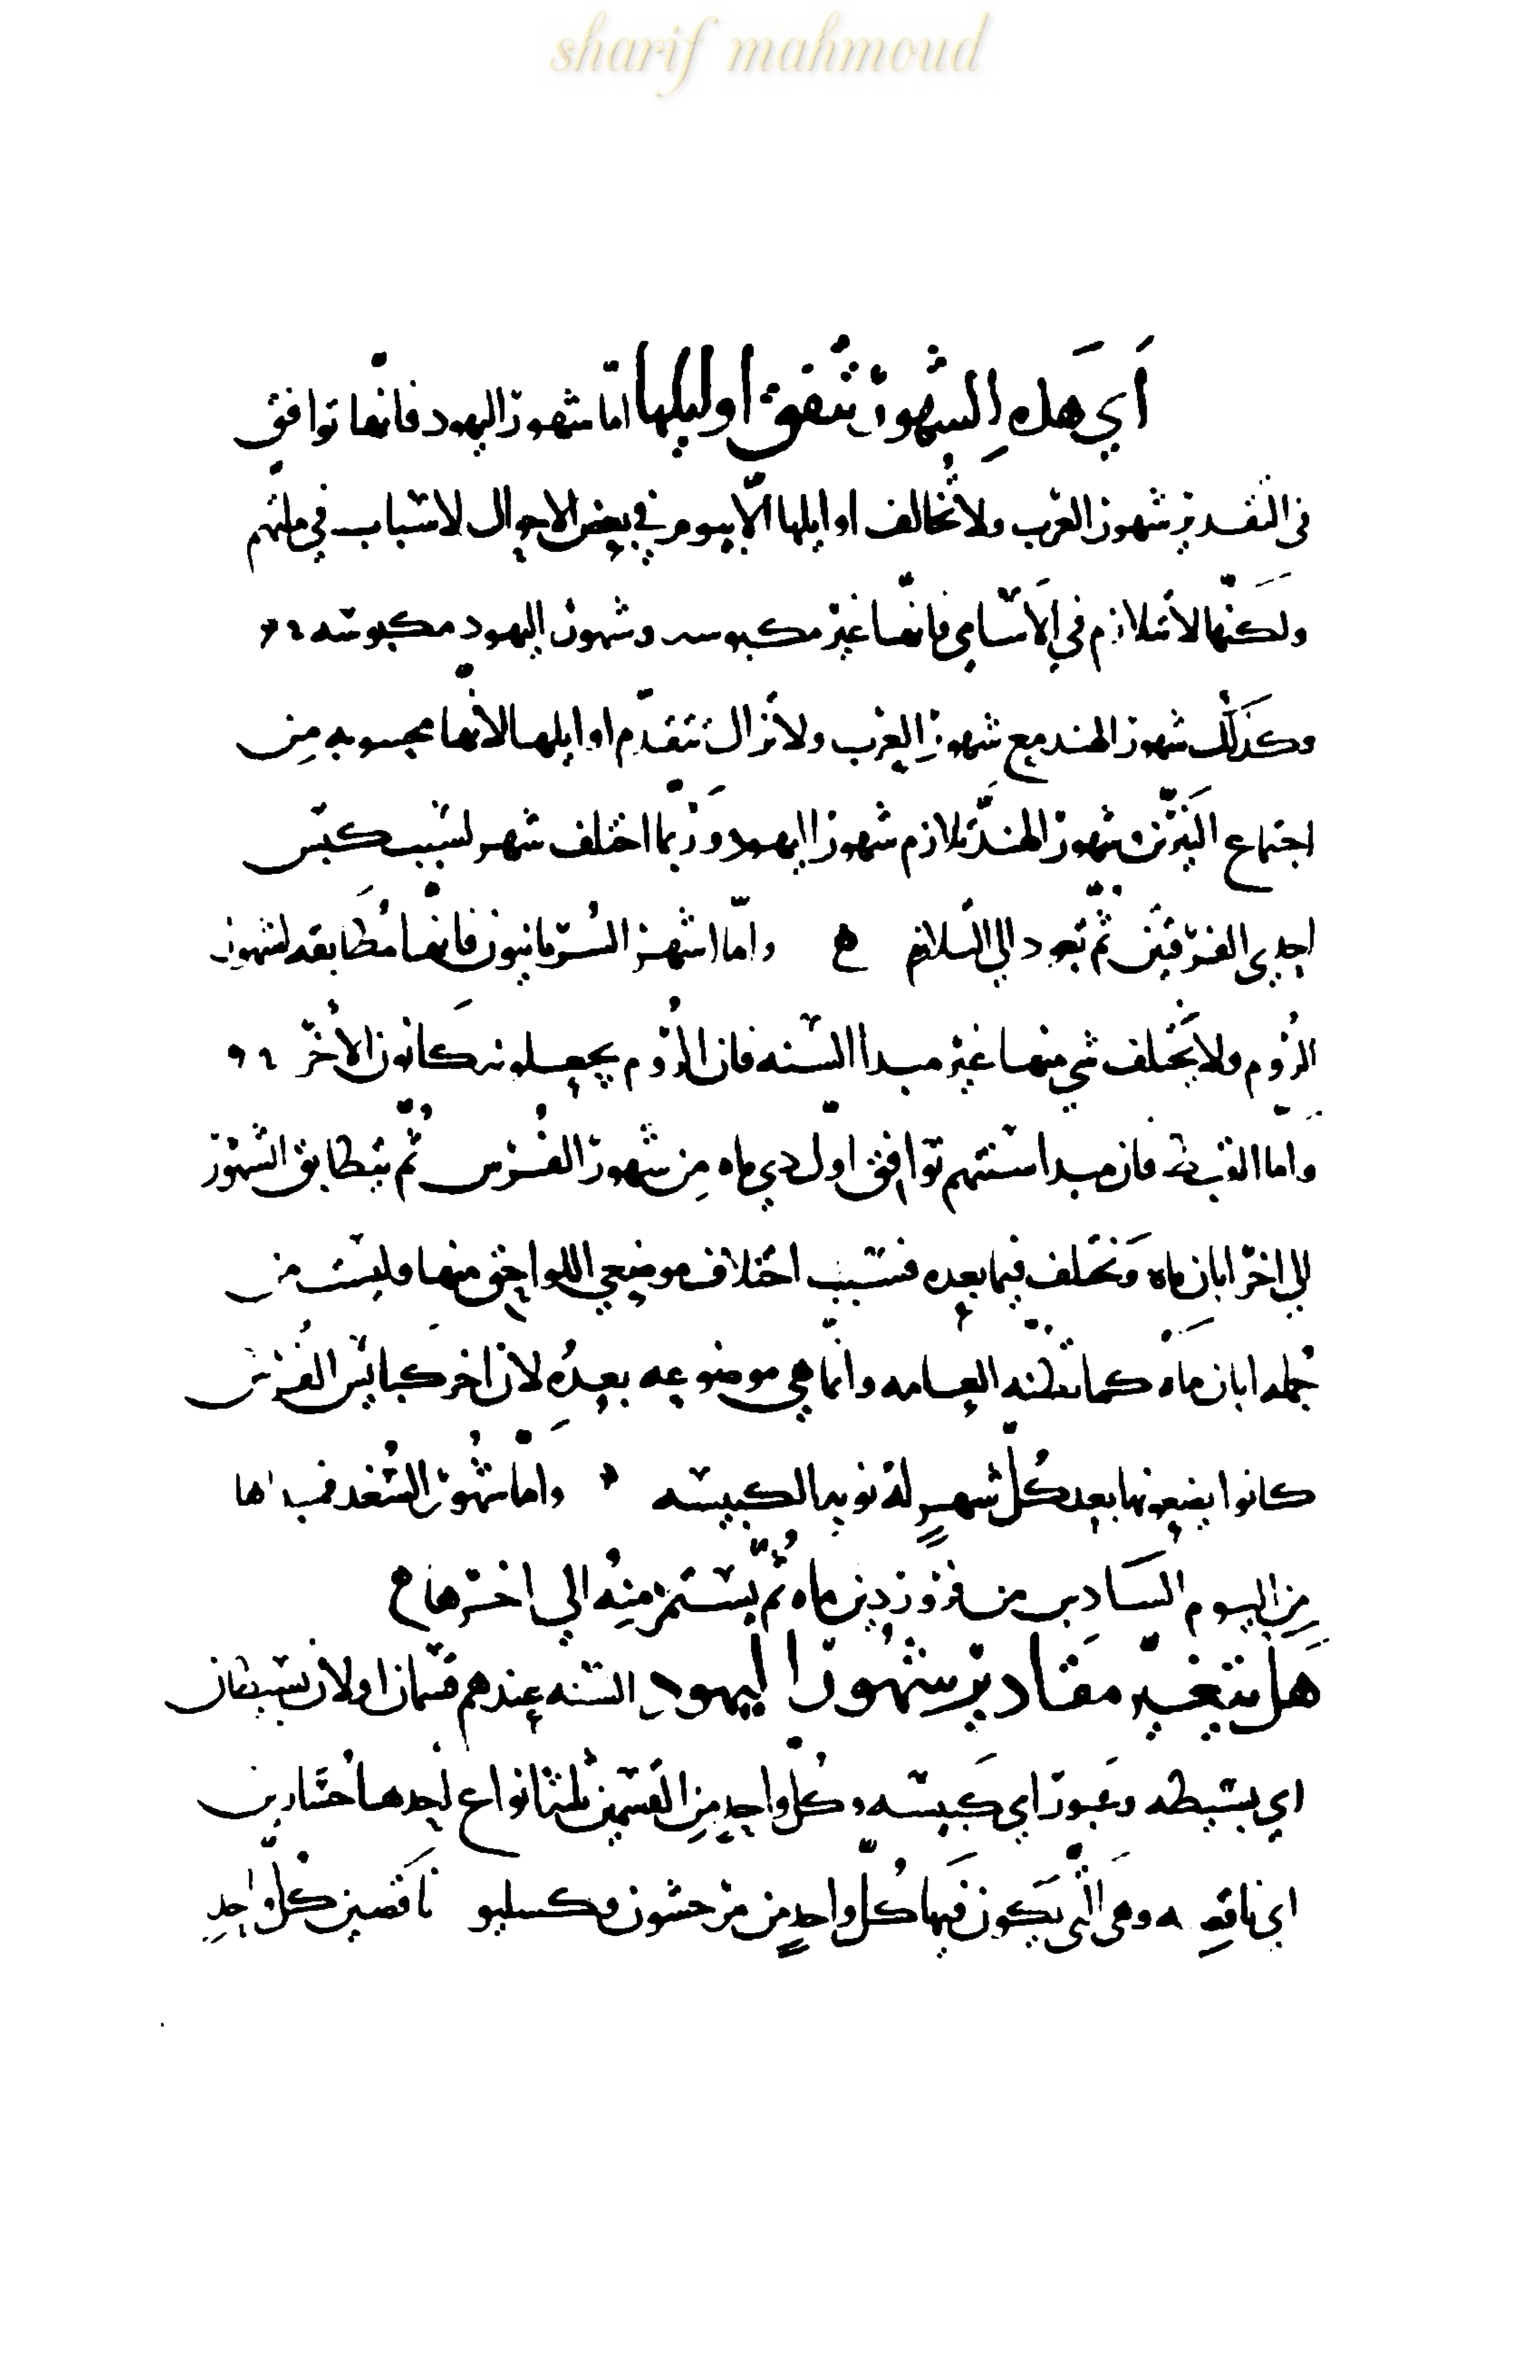 sharif mahmoud
أي هذه الشهور تتفق اوايلها امّا شهور اليهود فانّها توافق
في التقدير شهور العرب ولا تُخالف اوايلها الّا بيوم في بعض الاحوال لاسباب في ملتهم
ولكنّها لا تتلازم في الاسامي فانّها غير مكبوسه وشهور اليهود مكبوسه
وكذلك شهور الهند مع شهور العرب ولا تزال تتقدّم اوايلها لانّها محسوبه من
اجتماع النيّرين وشهور الهند تلازم شهور اليهود ورُبّما اختلف شهر لسبب كبس
احدى الفرقتين ثمّ تعود الى التلازم ه وامّا اشهر السُريانيون فانّها مُطابقه لشهور
الرُوم ولا يختلف شي منها غير مبدا السنه فان الرُوم يجعلونه كانون الاخر
واما القبط فان مبدا سنتهم توافق اول دي ماه من شهور الفُرس ثُم يتطابق الشهور
الى اخر ابان ماه وتختلف فيما بعده فسبب اختلاف موضعي اللواحق منها وليست من
جُمله ابان ماه كما تظنه العامه وانما هي موضوعه بعدُه لان اخر كبايس الفُرس
كانوا يضعونها بعد كُلّ شهرٍ له نوبه الكبيسه وامّا شهور السُغد فمبداها
من اليوم السادس من فروردين ماه ثُمّ يستمرّ منه الى اخرها ه
هل تتغيّر مقادير شهُور اليهود السنه عندهم قسمان اولان بسيطان
اي بسيطه وعبور اي كبيسه وكُلّ واحدٍ من القسمين ثلثا انواع احدها حسّارين
اي ناقصه وهي الّتي يكون فيها كُلّ واحدٍ من مرحشون وكسليو ناقصين كُلّ واحدٍ